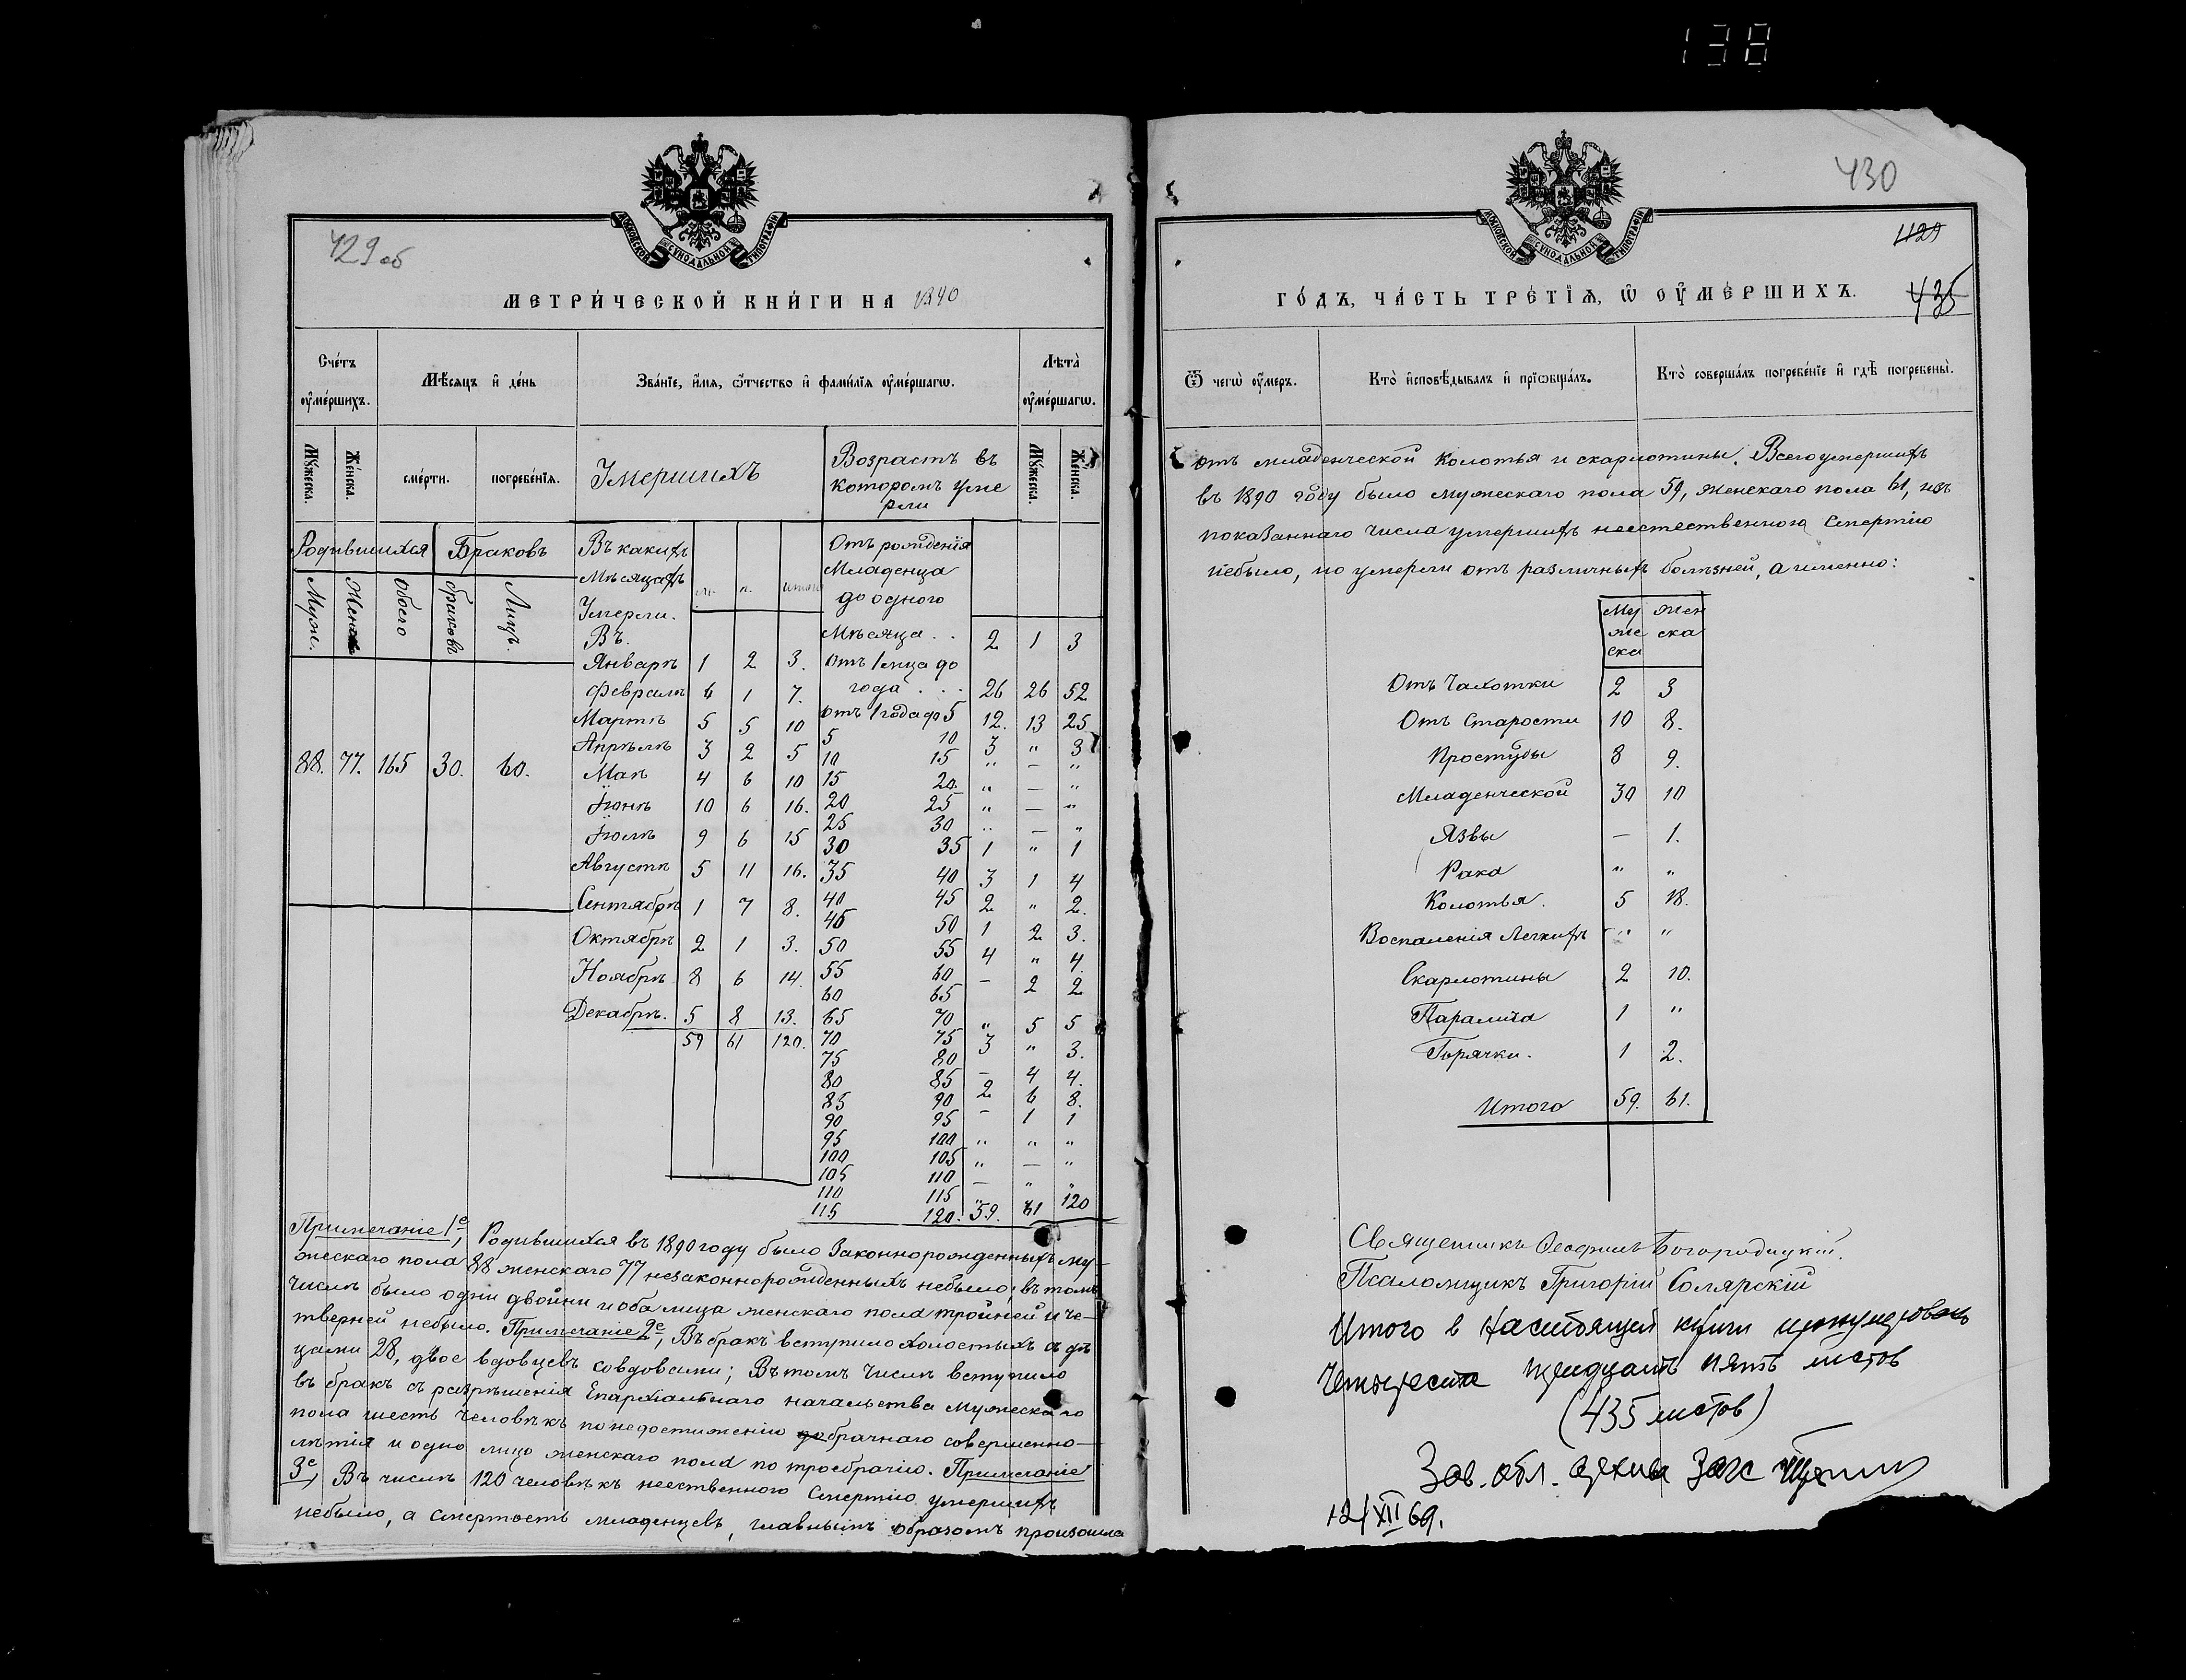 138
МОСКОВСКОЙ СѴНОДАЛЬНОЙ ТИПОГРАФІИ
429 об
МЕТРИ́ЧЕСКОЙ КНИ́ГИ НА 1890
Сче́тъ ᲂу҆ме́ршихъ.
Мѣ́сяцъ и҆ де́нь
Зва́нїе, и҆́мя, ѻ҆́тчество и҆ фами́лїя ᲂу҆ме́ршагѡ.
Лѣта̀ ᲂу҆ме́ршагѡ.
Мꙋ́жеска.
Же́нска.
сме́рти.
погребе́нїя.
Умершихъ
Возрастъ въ
которомъ уме
рли
Мꙋ́жеска.
Же́нска.
Родившихся
Браковъ
Муж.
Женс
Обоего
браковъ
Лицъ.
88. 77. 165 30. 60.
Въ какихъ
Мѣсяцахъ
Умерли.
Въ.
м. итого
Январѣ 1 2 3.
Февралѣ 6 1 7.
Мартѣ 5 5 10
Апрѣлѣ 3 2 5
Маѣ 4 6 10
Іюнѣ 10 6 16.
Іюлѣ 9 6 15
Августѣ 5 11 16.
Сентябрѣ 1 7 8.
Октябрѣ 2 1 3.
Ноябрѣ 8 6 14.
Декабрѣ. 5 8 13.
59 61 120.
Отъ рожденія
Младенца
до одного
Мѣсяца . . 2 1 3
Отъ 1 мца до
года . . . 26 26 52
Отъ 1 года до 5 12. 13 25
5 10 3 " 3
10 15 " — "
15 20. " — "
20 25 " — "
25 30 " — "
30 35 1 " 1
35 40 3 1 4
40 45 2 " 2.
45 50 1 2 3.
50 55 4 " 4.
55 60 — 2 2
60 65
65 70 " 5 5
70 75 3 " 3.
75 80 — 4 4.
80 85 2 6 8.
85 90 — 1 1
90 95
95 100 " " "
100 105 " — "
105 110 — " "
110 115 "
115 120. 59. 61 120
Примечаніе 1е, Родившихся въ 1890 году было Законнорожденныхъ му-
жескаго пола 88 женскаго 77 незаконнорожденныхъ небыло; въ томъ
числѣ было одни двойни и оба лица женскаго пола тройней и че-
тверней небыло. Примечаніе 2е, Въ бракъ вступило холостыхъ съ дѣ
цами 28, двое вдовцевъ совдовами; Въ томъ Числѣ вступило
въ бракъ съ разрѣшенія Епархіальнаго начальства Мужескаго
пола шесть Человѣкъ по недостиженію до брачнаго совершенно-
лѣтія и одно лицо женскаго пола по троебрачію. Примечаніе
3е, Въ числѣ 120 человѣкъ неественного Смертію умершихъ
небыло, а Смертость младенцевъ, главнымъ образомъ произошла
МОСКОВСКОЙ СѴНОДАЛЬНОЙ ТИПОГРАФІИ
430
1129
ГО́ДЪ, ЧА́СТЬ ТРЕ́ТЇѦ, Ѡ҆ ОУ҆МЕ́РШИХЪ.
435
Ѿ чегѡ̀ ᲂу҆́меръ.
Кто̀ и҆сповѣ́дывалъ и҆ прїѡбща́лъ.
Кто̀ соверша́лъ погребе́нїе и҆ гдѣ̀ погребены̀.
отъ младенческой Колотья и скарлотины. Всего умершихъ
въ 1890 году было мужескаго пола 59, женскаго пола 61, изъ
показаннаго Числа умершихъ неестественного Смертію
небыло, но умерли отъ различныхъ болѣзней, а именно:
Му
же
ска
жен
ска
Отъ Чахотки 2 3
Отъ Старости 10 8.
Простуды 8 9.
Младенческой 30 10
Язвы — 1.
Рака " "
Колотья. 5 18.
Воспаленія Легкихъ " "
Скарлотины 2 10.
Паралича 1 "
Горячки. 1 2.
Итого 59. 61.
Священникъ Ѳеофилъ Богородицкій.
Псаломщикъ Григорій Солярскій
Итого в настоящей книги пронумеровано
Четыреста тридцать пять листов
(435 листов)
Зав. обл. архива Загс
12/XII 69.